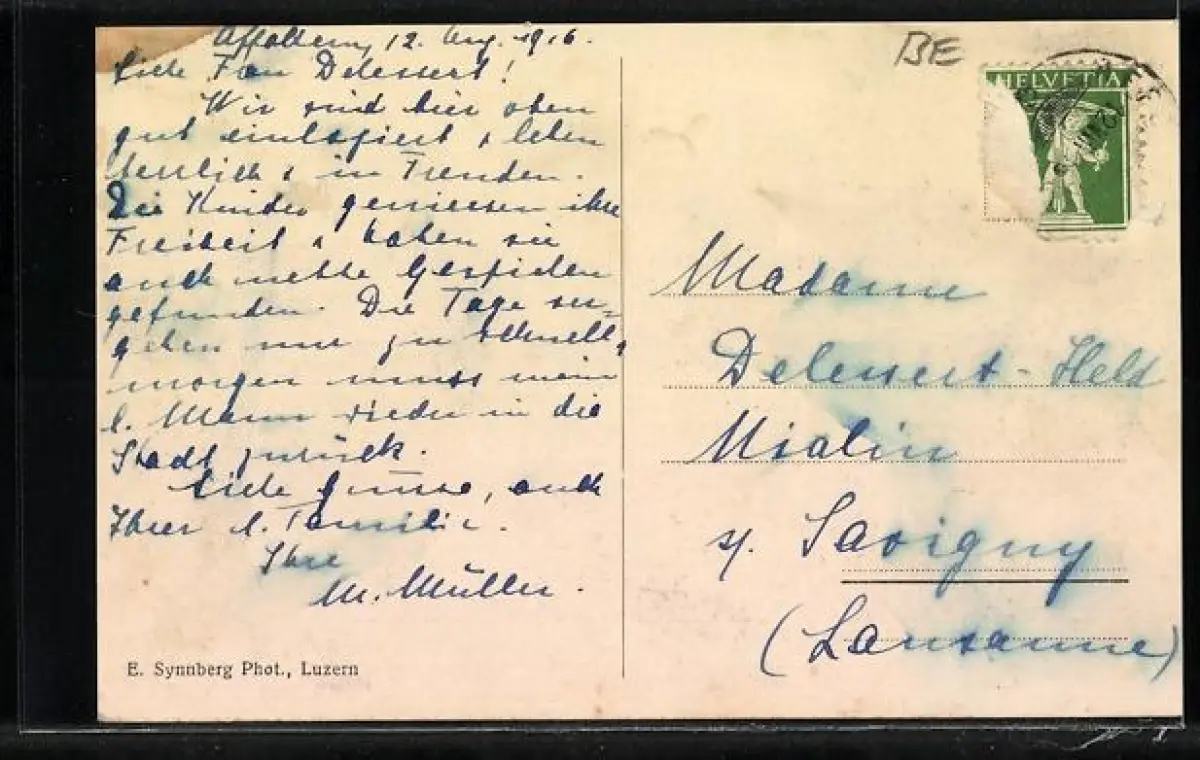 Affoltern, 12. Aug. 1916.
Liebe Frau Delessert!
Wir sind hier oben
gut einlogiert & leben
herrlich & in Freuden.
Die Kinder geniessen ihre
Freiheit & haben sie
auch nette Gespielen
gefunden. Die Tage ver-
gehen nur zu schnell,
morgen muss mein
l. Mann wieder in die
Stadt zurück.
Liebe Grüsse, auch
Ihrer l. Familie.
Ihre
M. Müller.
E. Synnberg Phot., Luzern
BE
HELVETIA
Madame
Delessert-Held
Mialin
s/. Savigny
(Lausanne)